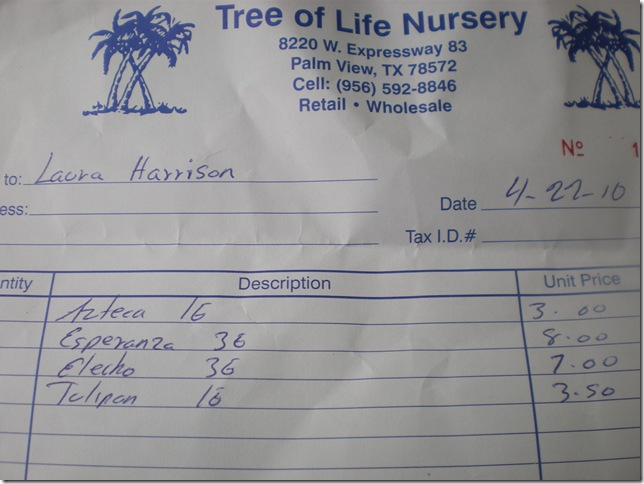 Tree of Life Nursery
8220 W. Expressway 83
Palm View, TX 78572
Cell: (956) 592-8846
Retail • Wholesale
Nº 1
to: Laura Harrison
ess:
Date 4-22-10
Tax I.D.#
ntity Description Unit Price
Azteca 1G 3.00
Esperanza 3G 8.00
Elecho 3G 7.00
Tulipan 1G 3.50